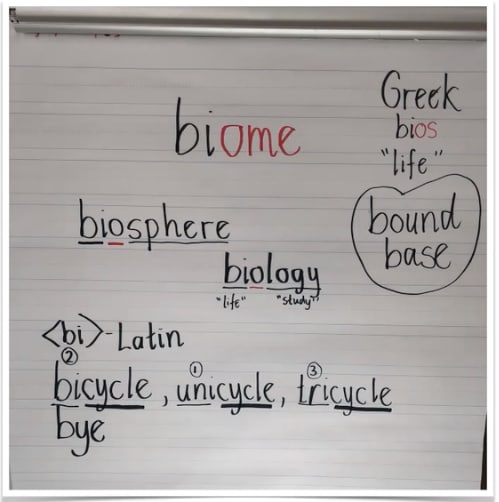 Greek
bios
"life"
biome
bound
base
biosphere
biology
"life" "study"
<bi>-Latin
② ① ③
bicycle, unicycle, tricycle
bye